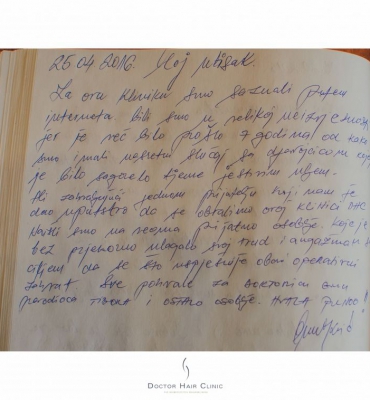 25.04.2016. Moj utisak.
Za ovu kliniku smo saznali putem
interneta. Bili smo u velikoj neizvjesnosti,
jer je već bilo prošlo 7 godina od kako
smo imali nesretni slučaj sa djevojčicom koja
je bilo tjeme
Ali zahvaljujući jednom prijatelju koji nam je
dao uputstvo da se obratimo ovoj klinici DHC
naišli smo na veoma prijatno osoblje, koje je
bez prijekorno ulagalo svoj trud i angažman
ciljem da se što uspješnije obavi operativni
zahvat. Sve pohvale za doktoricu
i ostalo osoblje. HVALA PUNO!
DOCTOR HAIR CLINIC